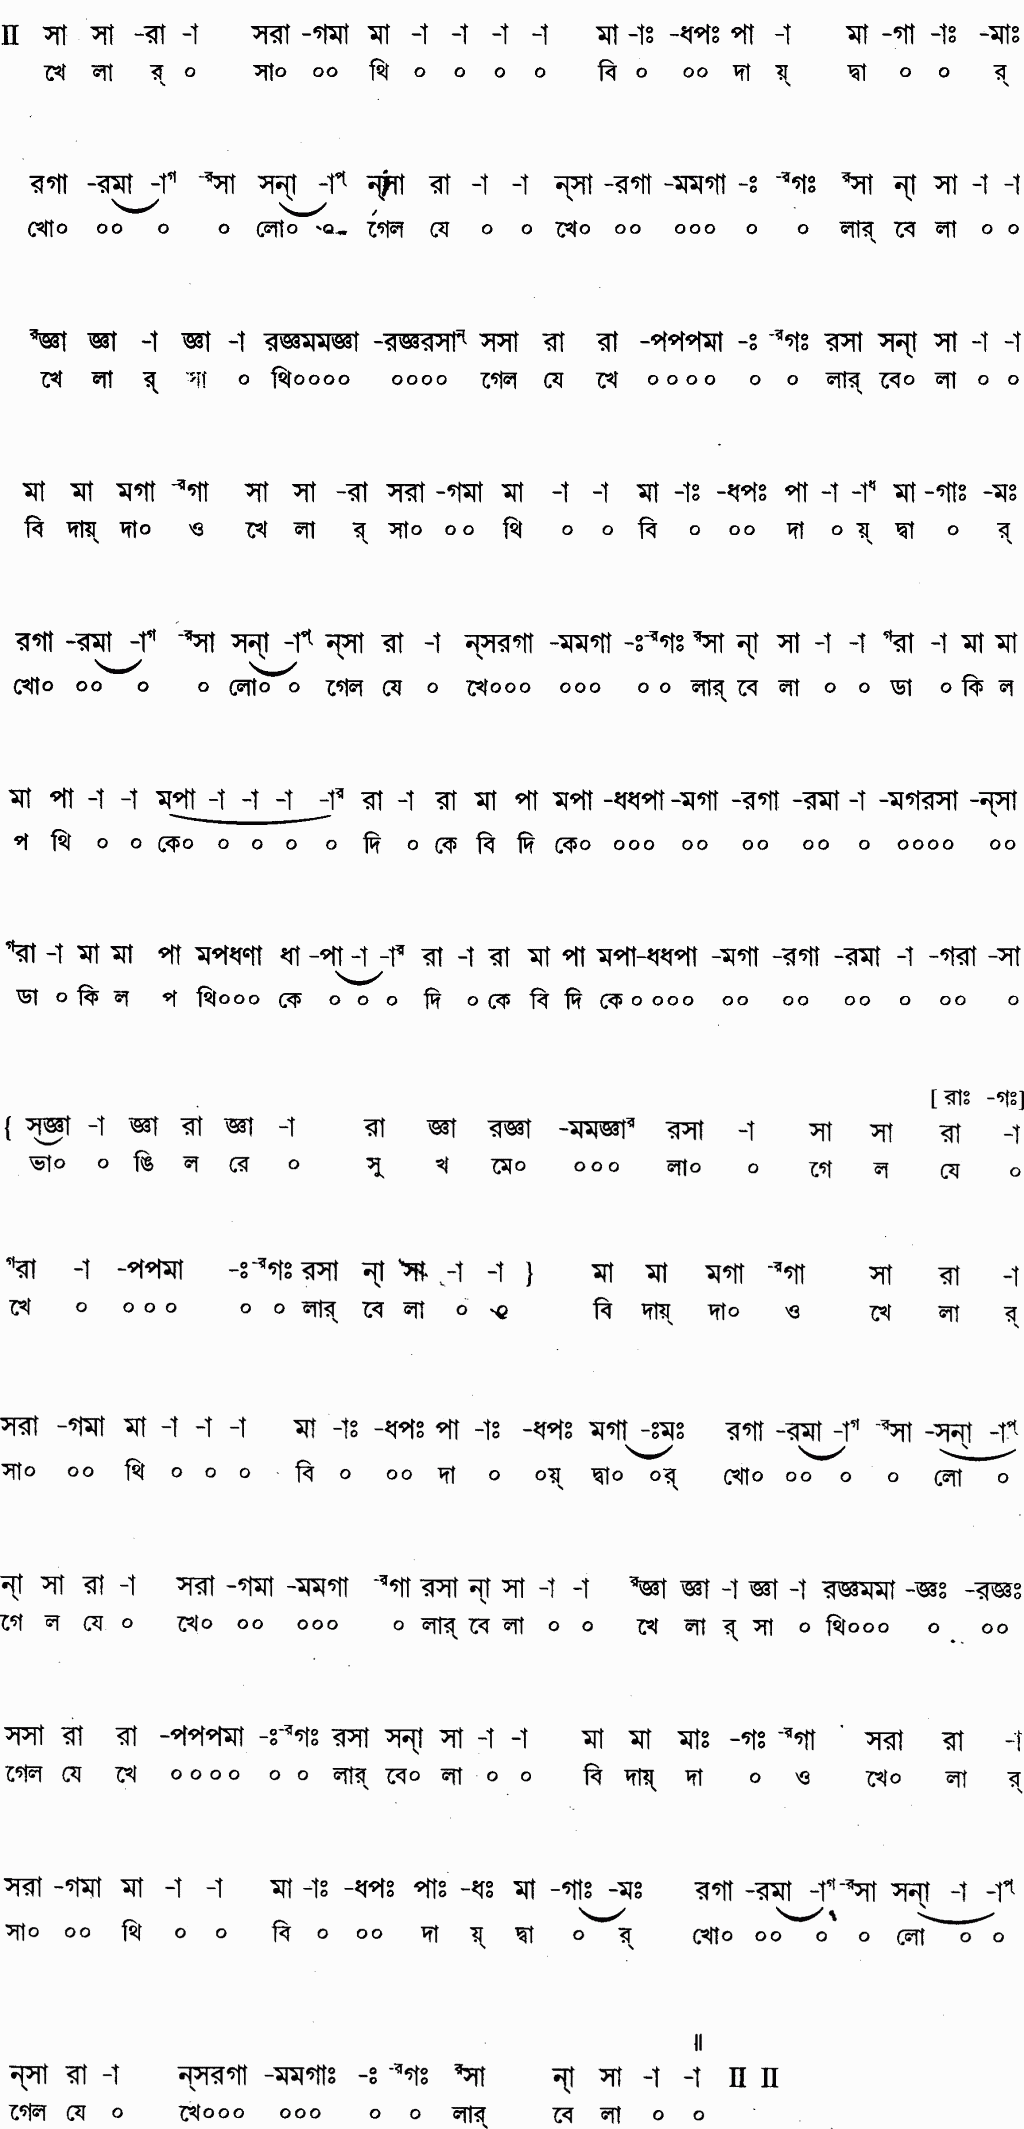 II সা সা -রা -া সরা -গমা মা -া -া -া -া মা -াঃ -ধপঃ পা -া মা -গা -াঃ -মাঃ
খে লা র্ ০ সা০ ০০ থি ০ ০ ০ ০ বি ০ ০০ দা য়্ দ্বা ০ ০ র্
রগা -রমা -াগ -রসা সন্া -াপ্ ন্সা রা -া -া ন্সা -রগা -মমগা -ঃ -রগঃ রসা ন্া সা -া -া
খো০ ০০ ০ ০ লো০ ০ গেল যে ০ ০ খে০ ০০ ০০০ ০ ০ লার্ বে লা ০ ০
রজ্ঞা জ্ঞা -া জ্ঞা -া রজ্ঞমমজ্ঞা -রজ্ঞরসান্ সসা রা রা -পপপমা -ঃ -রগঃ রসা সন্া সা -া -া
খে লা র্ সা ০ থি০০০০ ০০০০ গেল যে খে ০০০০ ০ ০ লার্ বে০ লা ০ ০
মা মা মগা -রগা সা সা -রা সরা -গমা মা -া -া মা -াঃ -ধপঃ পা -া -াধ মা -গাঃ -মঃ
বি দায়্ দা০ ও খে লা র্ সা০ ০০ থি ০ ০ বি ০ ০০ দা ০ য়্ দ্বা ০ র্
রগা -রমা -াগ -রসা সন্া -াপ্ ন্সা রা -া ন্সরগা -মমগা -ঃ-রগঃ রসা ন্া সা -া -া গরা -া মা মা
খো০ ০০ ০ ০ লো০ ০ গেল যে ০ খে০০০ ০০০ ০ ০ লার্ বে লা ০ ০ ডা ০ কি ল
মা পা -া -া মপা -া -া -া -ার রা -া রা মা পা মপা -ধধপা -মগা -রগা -রমা -া -মগরসা -ন্সা
প থি ০ ০ কে০ ০ ০ ০ ০ দি ০ কে বি দি কে০ ০০০ ০০ ০০ ০০ ০ ০০০০ ০০
গরা -া মা মা পা মপধণা ধা -পা -া -ার রা -া রা মা পা মপা-ধধপা -মগা -রগা -রমা -া -গরা -সা
ডা ০ কি ল প থি০০০ কে ০ ০ ০ দি ০ কে বি দি কে০ ০০০ ০০ ০০ ০০ ০ ০০ ০
[ রাঃ -গঃ]
{ সজ্ঞা -া জ্ঞা রা জ্ঞা -া রা জ্ঞা রজ্ঞা -মমজ্ঞার রসা -া সা সা রা -া
ভা০ ০ ঙি ল রে ০ সু খ মে০ ০০০ লা০ ০ গে ল যে ০
গরা -া -পপমা -ঃ-রগঃ রসা ন্া সা -া -া } মা মা মগা -রগা সা রা -া
খে ০ ০০০ ০ ০ লার্ বে লা ০ ০ বি দায়্ দা০ ও খে লা র্
সরা -গমা মা -া -া -া মা -াঃ -ধপঃ পা -াঃ -ধপঃ মগা -ঃমঃ রগা -রমা -াগ -রসা -সন্া -াপ্
সা০ ০০ থি ০ ০ ০ বি ০ ০০ দা ০ ০য়্ দ্বা০ ০র্ খো০ ০০ ০ ০ লো ০
ন্া সা রা -া সরা -গমা -মমগা -রগা রসা ন্া সা -া -া রজ্ঞা জ্ঞা -া জ্ঞা -া রজ্ঞমমা -জ্ঞঃ -রজ্ঞঃ
গে ল যে ০ খে০ ০০ ০০০ ০ লার্ বে লা ০ ০ খে লা র্ সা ০ থি০০০ ০ ০০
সসা রা রা -পপপমা -ঃ-রগঃ রসা সন্া সা -া -া মা মা মাঃ -গঃ -রগা সরা রা -া
গেল যে খে ০০০০ ০ ০ লার্ বে০ লা ০ ০ বি দায়্ দা ০ ও খে০ লা র্
সরা -গমা মা -া -া মা -াঃ -ধপঃ পাঃ -ধঃ মা -গাঃ -মঃ রগা -রমা -াগ -রসা সন্া -া -াপ্
সা০ ০০ থি ০ ০ বি ০ ০০ দা য়্ দ্বা ০ র্ খো০ ০০ ০ ০ লো ০ ০
ন্সা রা -া ন্সরগা -মমগাঃ -ঃ -রগঃ রসা ন্া সা -া -া II II
গেল যে ০ খে০০০ ০০০ ০ ০ লার্ বে লা ০ ০